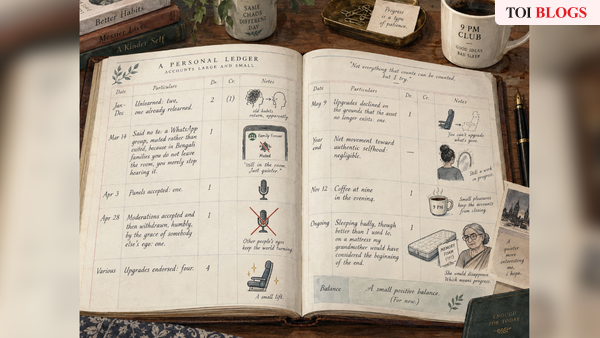 TOI BLOGS
Better Habits
A Kinder Self
SAME
CHAOS
DIFFERENT
DAY
Progress
is a type
of patience.
9 PM
CLUB
A PERSONAL LEDGER
ACCOUNTS LARGE AND SMALL
Date Particulars Dr. Cr. Notes
Jan - Dec Unlearned: two, one already relearned. 2 (1)
old habits
return, apparently
Mar 14 Said no to: a WhatsApp 1
group, muted rather than
exited, because in Bengali
families you do not leave
the room, you merely stop
hearing it.
Family Forever
Muted
"Still in the room.
Just quieter."
Apr 3 Panels accepted: one. 1
Apr 28 Moderations accepted and 1
then withdrawn, humbly,
by the grace of somebody
else's ego: one.
Other people's egos
keep the world turning.
Various Upgrades endorsed: four. 4
A small lift
"Not everything that counts can be counted,
but I try."
Date Particulars Dr. Cr. Notes
May 9 Upgrades declined on 1
the grounds that the asset
no longer exists: one.
You can't upgrade
what's gone.
Year end Not movement toward —
authentic selfhood:
negligible.
Still a work
in progress.
Nov 12 Coffee at nine 1
in the evening.
9 PM
Small pleasures
keep the accounts
from closing.
Ongoing Sleeping badly, though 1
better than I used to,
on a mattress my
grandmother would have
considered the beginning
of the end.
MEMORY
FOAM
She would disapprove.
Which means progress.
Balance A small positive balance.
(For now.)
A
quieter
more
interesting
me,
I hope.
ENOUGH
FOR TODAY